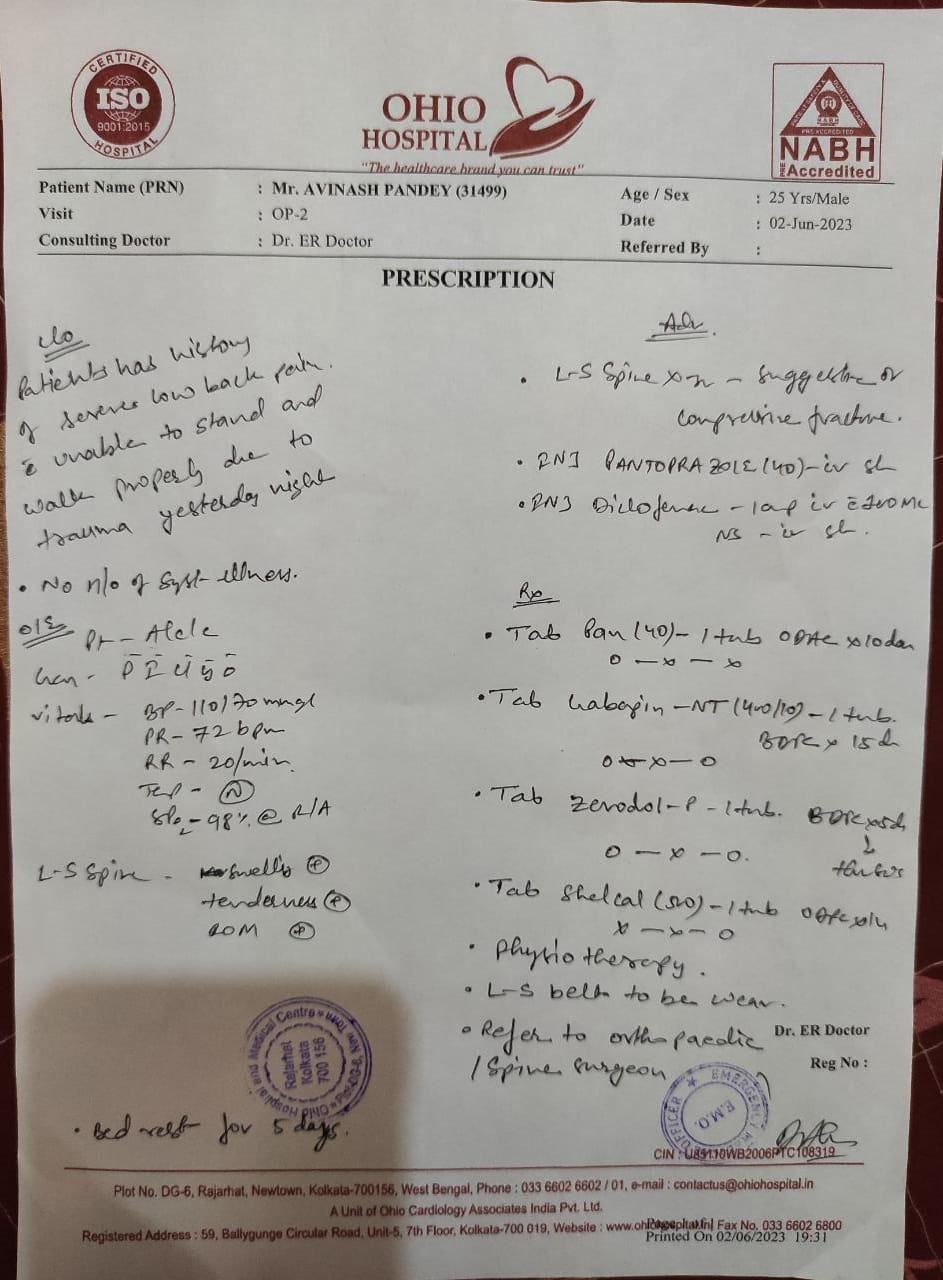 CERTIFIED
ISO
9001:2015
HOSPITAL
OHIO
HOSPITAL
"The healthcare brand you can trust"
PRE ACCREDITED
NABH
PRE Accredited
Patient Name (PRN) : Mr. AVINASH PANDEY (31499)
Visit : OP-2
Consulting Doctor : Dr. ER Doctor
Age / Sex : 25 Yrs/Male
Date : 02-Jun-2023
Referred By :
PRESCRIPTION
c/o
Patients has history
of severe low back pain.
c̄ unable to stand and
walk properly due to
trauma yesterday night
• No h/o of Syst illness.
O/E
Pt -
Vitals - BP - 110/70 mmHg
PR - 72 bpm
RR - 20/min.
Temp - (N)
SPO2 - 98% @ R/A
L-S Spine - swelling (+)
tenderness (+)
ROM (+)
• Bed rest for 5 days.
Adv.
• L-S Spine X-ray - Suggestive of
compressive fracture.
• INJ PANTOPRAZOLE (40) - iv st
• INJ Diclofenac - 1amp iv c̄
NS - iv st.
Rx
• Tab Pan (40) - 1 tab ODAC x 10 days
0 — x — x
• Tab Gabapin - NT (400/10) - 1 tab.
BDPC x 15 d
0 — x — 0
• Tab Zerodol-P - 1 tab. BDPC x 5d
0 — x — 0.
• Tab Shelcal (500) - 1 tab ODPC
x — x — 0
• Physiotherapy.
• L-S belt to be wear.
• Refer to orthopaedic
/ Spine surgeon
Dr. ER Doctor
Reg No :
Ohio Hospital and Medical Centre
DG-6, New Town
Rajarhat
Kolkata
700 156
EMERGENCY OFFICER
E.M.O.
CIN : U85110WB2006PTC108319
Plot No. DG-6, Rajarhat, Newtown, Kolkata-700156, West Bengal, Phone : 033 6602 6602 / 01, e-mail : contactus@ohiohospital.in
A Unit of Ohio Cardiology Associates India Pvt. Ltd.
Registered Address : 59, Ballygunge Circular Road, Unit-5, 7th Floor, Kolkata-700 019, Website : Fax No. 033 6602 6800
Printed On 02/06/2023 19:31